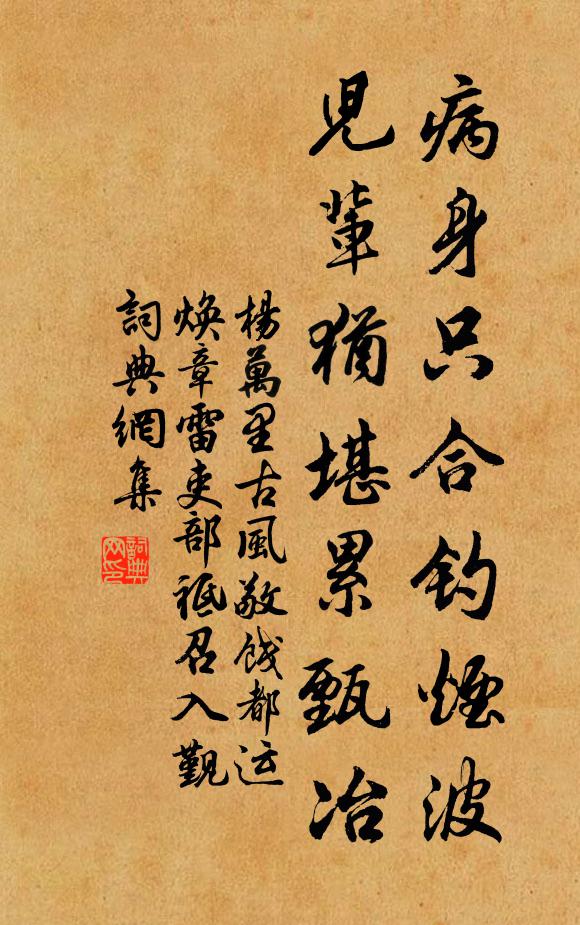 病身只合钓煙波
兒輩猶堪累甄冶
楊萬里古風敬餞都运
焕章雷吏部祗召入觐
詞典網集
詞典
网印